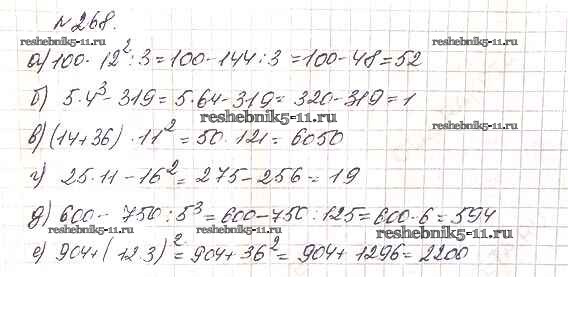 №268.
reshebnik5-11.ru reshebnik5-11.ru
а) 100 - 12² : 3 = 100 - 144 : 3 = 100 - 48 = 52
б) 5·4³ - 319 = 5·64 - 319 = 320 - 319 = 1
reshebnik5-11.ru
в) (14+36) · 11² = 50 · 121 = 6050 reshebnik5-11.ru
г) 25·11 - 16² = 275 - 256 = 19
д) 600 - 750 : 5³ = 600 - 750 : 125 = 600-6 = 594
reshebnik5-11.ru reshebnik5-11.ru
е) 904 + (12·3)² = 904 + 36² = 904 + 1296 = 2200
reshebnik5-11.ru